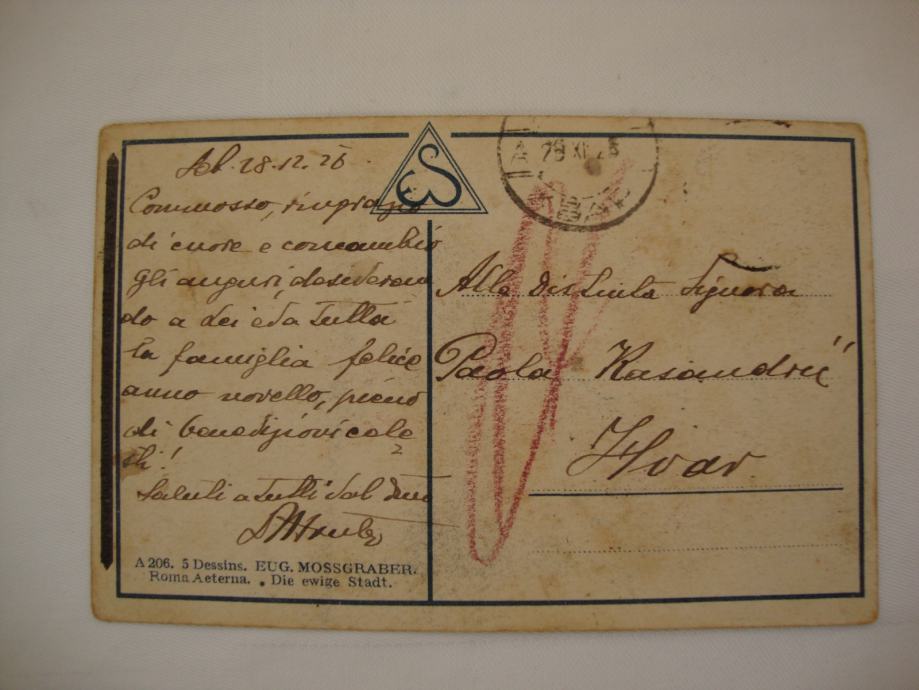 28.12.26.
Commosso, ringrazio
di cuore e concambio
gli auguri, desideran
do a Lei ed a tutta
la famiglia felice
anno novello, pieno
di benedizioni cele
sti!
Saluti a tutti dal
A 206. 5 Dessins. EUG. MOSSGRABER.
Roma Aeterna. • Die ewige Stadt.
29 XII
Alla distinta Signora
Paola Kasandrić
Hvar